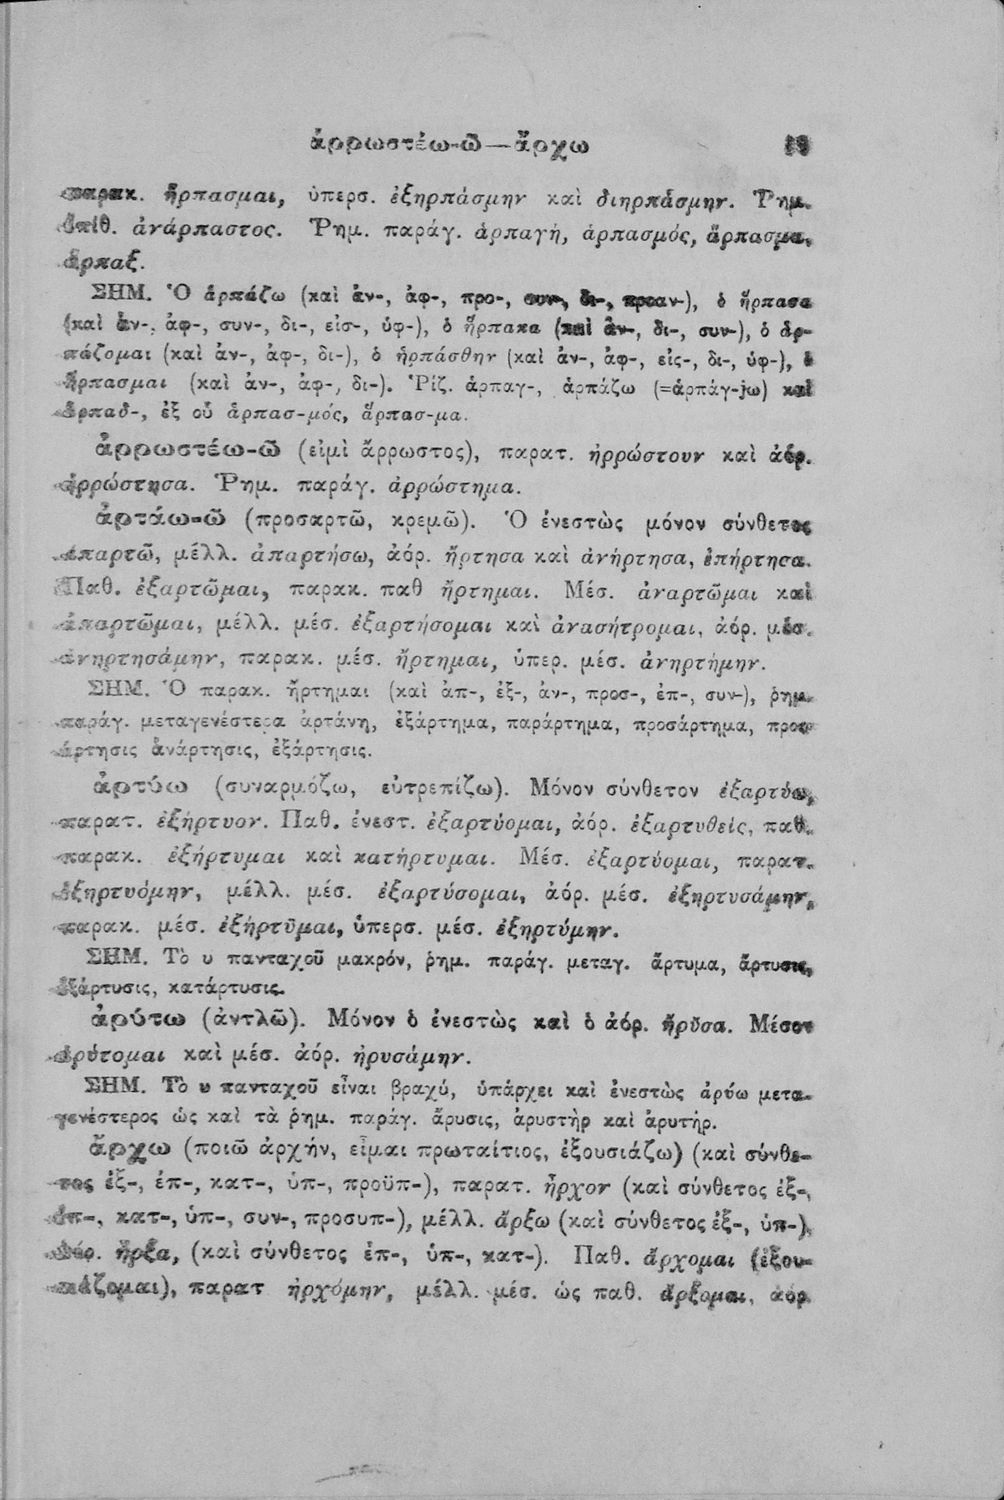 ἀρρωστέω-ῶ—ἄρχω 19
παρακ. ἥρπασμαι, ὑπερσ. ἐξηρπάσμην καὶ διηρπάσμην. Ῥημ.
ἐπίθ. ἀνάρπαστος. Ῥημ. παράγ. ἁρπαγή, ἁρπασμός, ἅρπασμα,
ἅρπαξ.
ΣΗΜ. Ὁ ἁρπάζω (καὶ ἀν-, ἀφ-, προ-, συν-, δι-, προαν-), ὁ ἥρπασα
(καὶ ἀν-, ἀφ-, συν-, δι-, εἰσ-, ὑφ-), ὁ ἥρπακα (καὶ ἀν-, δι-, συν-), ὁ ἁρ-
πάζομαι (καὶ ἀν-, ἀφ-, δι-), ὁ ἡρπάσθην (καὶ ἀν-, ἀφ-, εἰς-, δι-, ὑφ-), ὁ
ἥρπασμαι (καὶ ἀν-, ἀφ-, δι-). Ῥίζ. ἁρπαγ-, ἁρπάζω (=ἁρπάγ-jω) καὶ
ἁρπαδ-, ἐξ οὗ ἁρπασ-μός, ἅρπασ-μα.
ἀρρωστέω-ῶ (εἰμὶ ἄρρωστος), παρατ. ἠρρώστουν καὶ ἀόρ.
ἠρρώστησα. Ῥημ. παράγ. ἀρρώστημα.
ἀρτάω-ῶ (προσαρτῶ, κρεμῶ). Ὁ ἐνεστὼς μόνον σύνθετος
ἀπαρτῶ, μέλλ. ἀπαρτήσω, ἀόρ. ἤρτησα καὶ ἀνήρτησα, ἐπήρτησα.
Παθ. ἐξαρτῶμαι, παρακ. παθ ἤρτημαι. Μέσ. ἀναρτῶμαι καὶ
ἀπαρτῶμαι, μέλλ. μέσ. ἐξαρτήσομαι καὶ ἀνασήτρομαι, ἀόρ. μέσ.
ἀνηρτησάμην, παρακ. μέσ. ἤρτημαι, ὑπερ. μέσ. ἀνηρτήμην.
ΣΗΜ. Ὁ παρακ. ἤρτημαι (καὶ ἀπ-, ἐξ-, ἀν-, προσ-, ἐπ-, συν-), ῥημ.
παράγ. μεταγενέστερα ἀρτάνη, ἐξάρτημα, παράρτημα, προσάρτημα, προσ-
άρτησις ἀνάρτησις, ἐξάρτησις.
ἀρτύω (συναρμόζω, εὐτρεπίζω). Μόνον σύνθετον ἐξαρτύω,
παρατ. ἐξήρτυον. Παθ. ἐνεστ. ἐξαρτύομαι, ἀόρ. ἐξαρτυθείς, παθ.
παρακ. ἐξήρτυμαι καὶ κατήρτυμαι. Μέσ. ἐξαρτύομαι, παρατ.
ἐξηρτυόμην, μέλλ. μέσ. ἐξαρτύσομαι, ἀόρ. μέσ. ἐξηρτυσάμην,
παρακ. μέσ. ἐξήρτῦμαι, ὑπερσ. μέσ. ἐξηρτύμην.
ΣΗΜ. Τὸ υ πανταχοῦ μακρόν, ῥημ. παράγ. μεταγ. ἄρτυμα, ἄρτυσις,
ἐξάρτυσις, κατάρτυσις.
ἀρύτω (ἀντλῶ). Μόνον ὁ ἐνεστὼς καὶ ὁ ἀόρ. ἤρῠσα. Μέσον
ἀρύτομαι καὶ μέσ. ἀόρ. ἠρυσάμην.
ΣΗΜ. Τὸ υ πανταχοῦ εἶναι βραχύ, ὑπάρχει καὶ ἐνεστὼς ἀρύω μετα-
γενέστερος ὡς καὶ τὰ ῥημ. παράγ. ἄρυσις, ἀρυστὴρ καὶ ἀρυτήρ.
ἄρχω (ποιῶ ἀρχήν, εἶμαι πρωταίτιος, ἐξουσιάζω) (καὶ σύνθε-
τος ἐξ-, ἐπ-, κατ-, ὑπ-, προϋπ-), παρατ. ἦρχον (καὶ σύνθετος ἐξ-,
ἐπ-, κατ-, ὑπ-, συν-, προσυπ-), μέλλ. ἄρξω (καὶ σύνθετος ἐξ-, ὑπ-),
ἀόρ. ἦρξα, (καὶ σύνθετος ἐπ-, ὑπ-, κατ-). Παθ. ἄρχομαι (ἐξου-
σιάζομαι), παρατ ἠρχόμην, μέλλ. μέσ. ὡς παθ. ἄρξομαι, ἀόρ